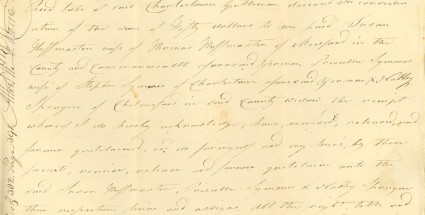 said late of said Charlestown Gentleman deceased in conside
ration of the sum of Fifty dollars to me paid Susan
Hoffmaster wife of Thomas Hoffmaster of Medford in the
County and Commonwealth aforesaid Yeoman, Priscilla Symmes
wife of Stephen Symmes of Charlestown aforesaid Yeoman, & Nabby
Sprague of Chelmsford in said County Widow the receipt
whereof I do hereby acknowledge, have remised, released, and
forever quitclaimed, & do for myself and my heirs, by these
presents, remise, release and forever quitclaim unto the
said Susan Hoffmaster, Priscilla Symmes & Nabby Sprague
their respective heirs and assigns, all the right title and